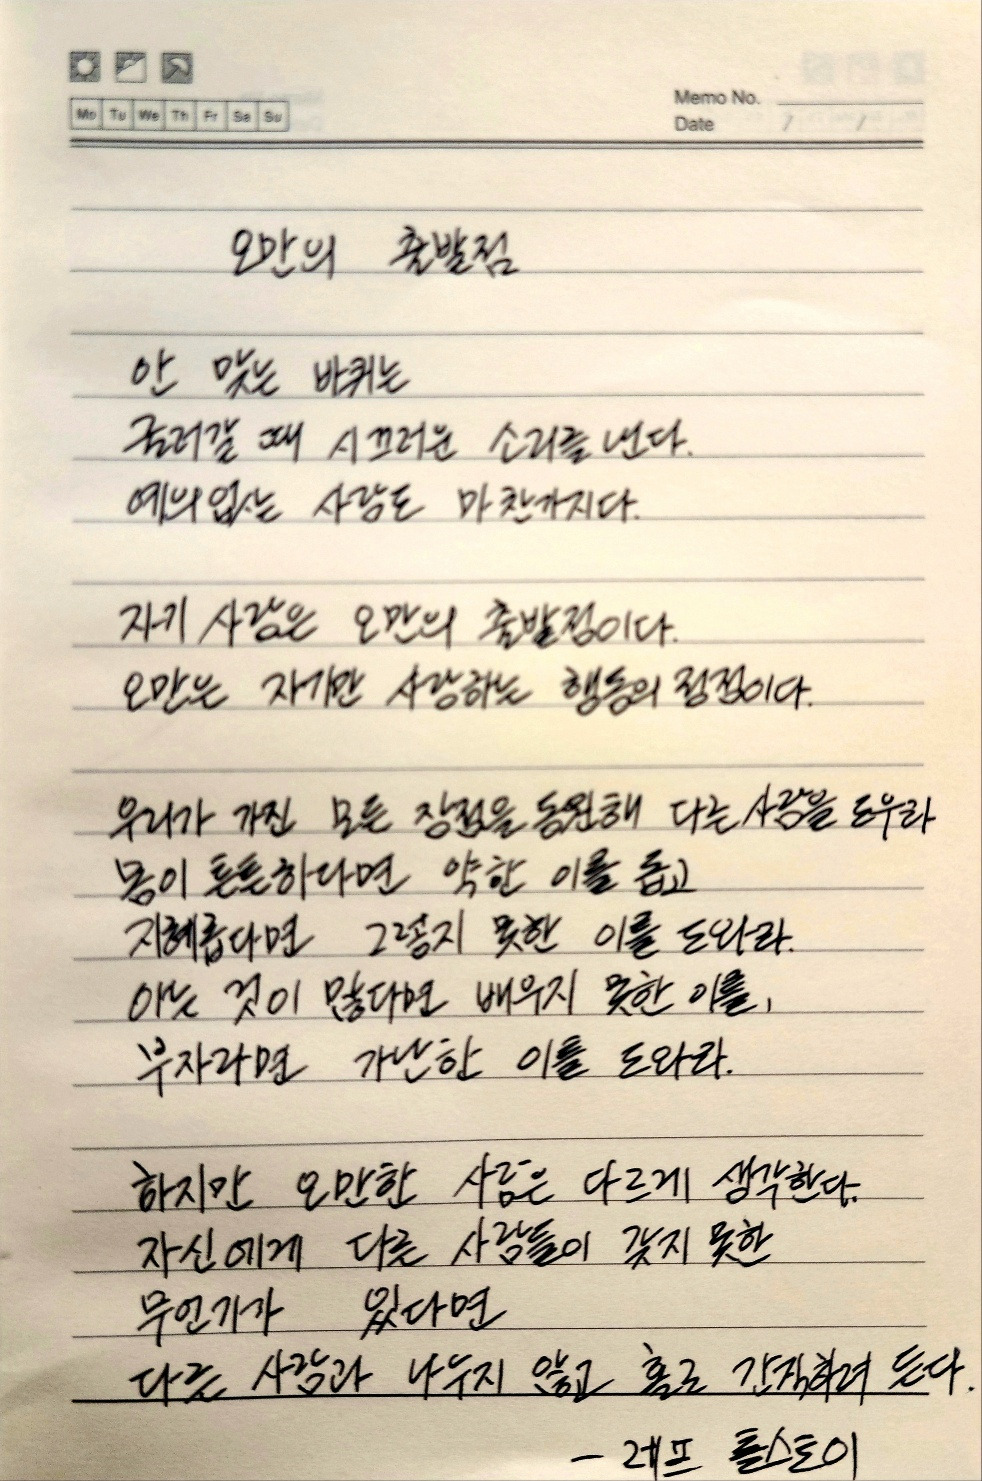 Mo Tu We Th Fr Sa Su
Memo No.
Date / /
오만의 출발점
안 맞는 바퀴는
굴러갈 때 시끄러운 소리를 낸다.
예의없는 사람도 마찬가지다.
자기 사랑은 오만의 출발점이다.
오만은 자기만 사랑하는 행동의 정점이다.
우리가 가진 모든 장점을 동원해 다른 사람을 도우라
몸이 튼튼하다면 약한 이를 돕고
지혜롭다면 그렇지 못한 이를 도와라.
아는 것이 많다면 배우지 못한 이를,
부자라면 가난한 이를 도와라.
하지만 오만한 사람은 다르게 생각한다.
자신에게 다른 사람들이 갖지 못한
무언가가 있다면
다른 사람과 나누지 않고 홀로 간직하려 든다.
- 레프 톨스토이